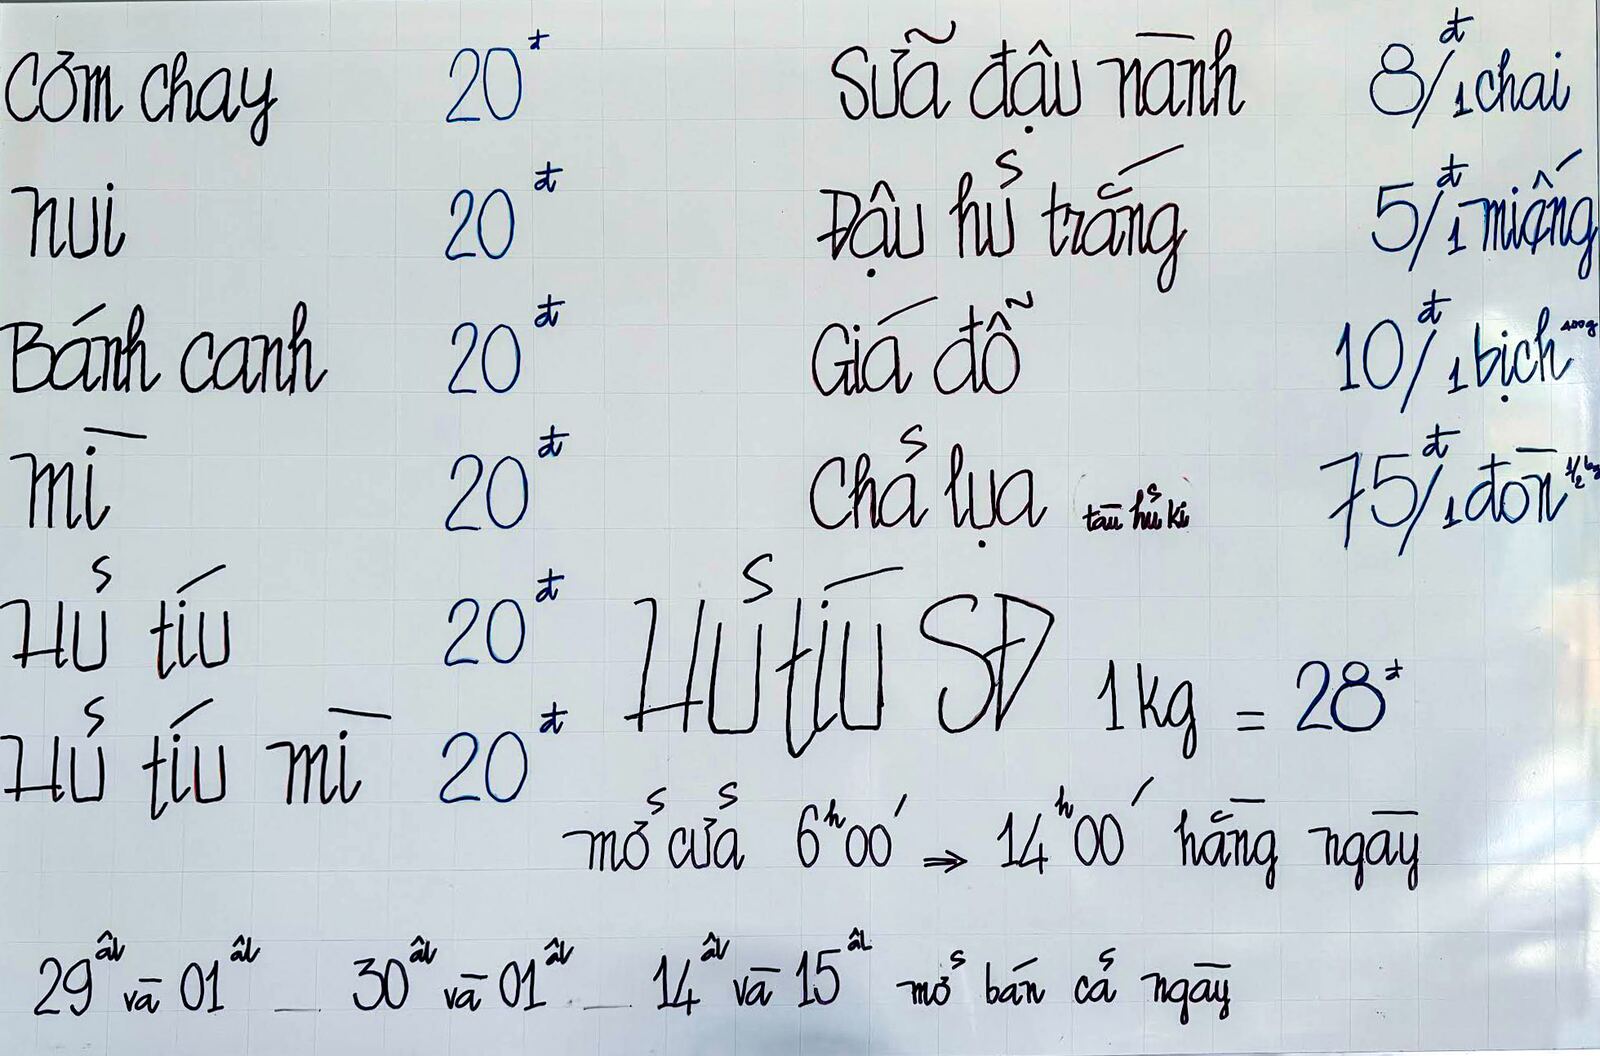 Cơm chay 20đ
nui 20đ
Bánh canh 20đ
mì 20đ
Hủ tíu 20đ
Hủ tíu mì 20đ
Sữa đậu nành 8đ/1 chai
Đậu hủ trắng 5đ/1 miếng
Giá đỗ 10đ/1 bịch 400g
Chả lụa tàu hủ ki 75đ/1 đòn 1/2 kg
Hủ tíu SĐ 1kg = 28đ
mở cửa 6h00' ⇒ 14h00' hằng ngày
29âl và 01âl _ 30âl và 01âl _ 14âl và 15âL mở bán cả ngày